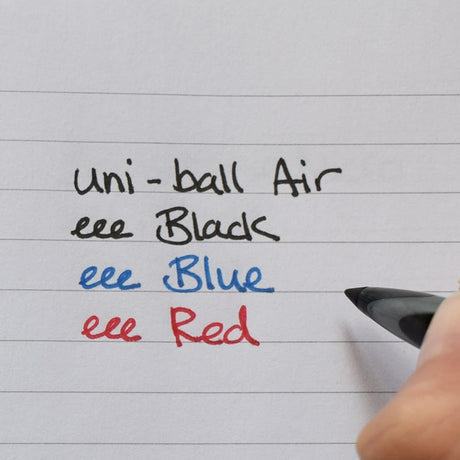 uni-ball Air
eee Black
eee Blue
eee Red